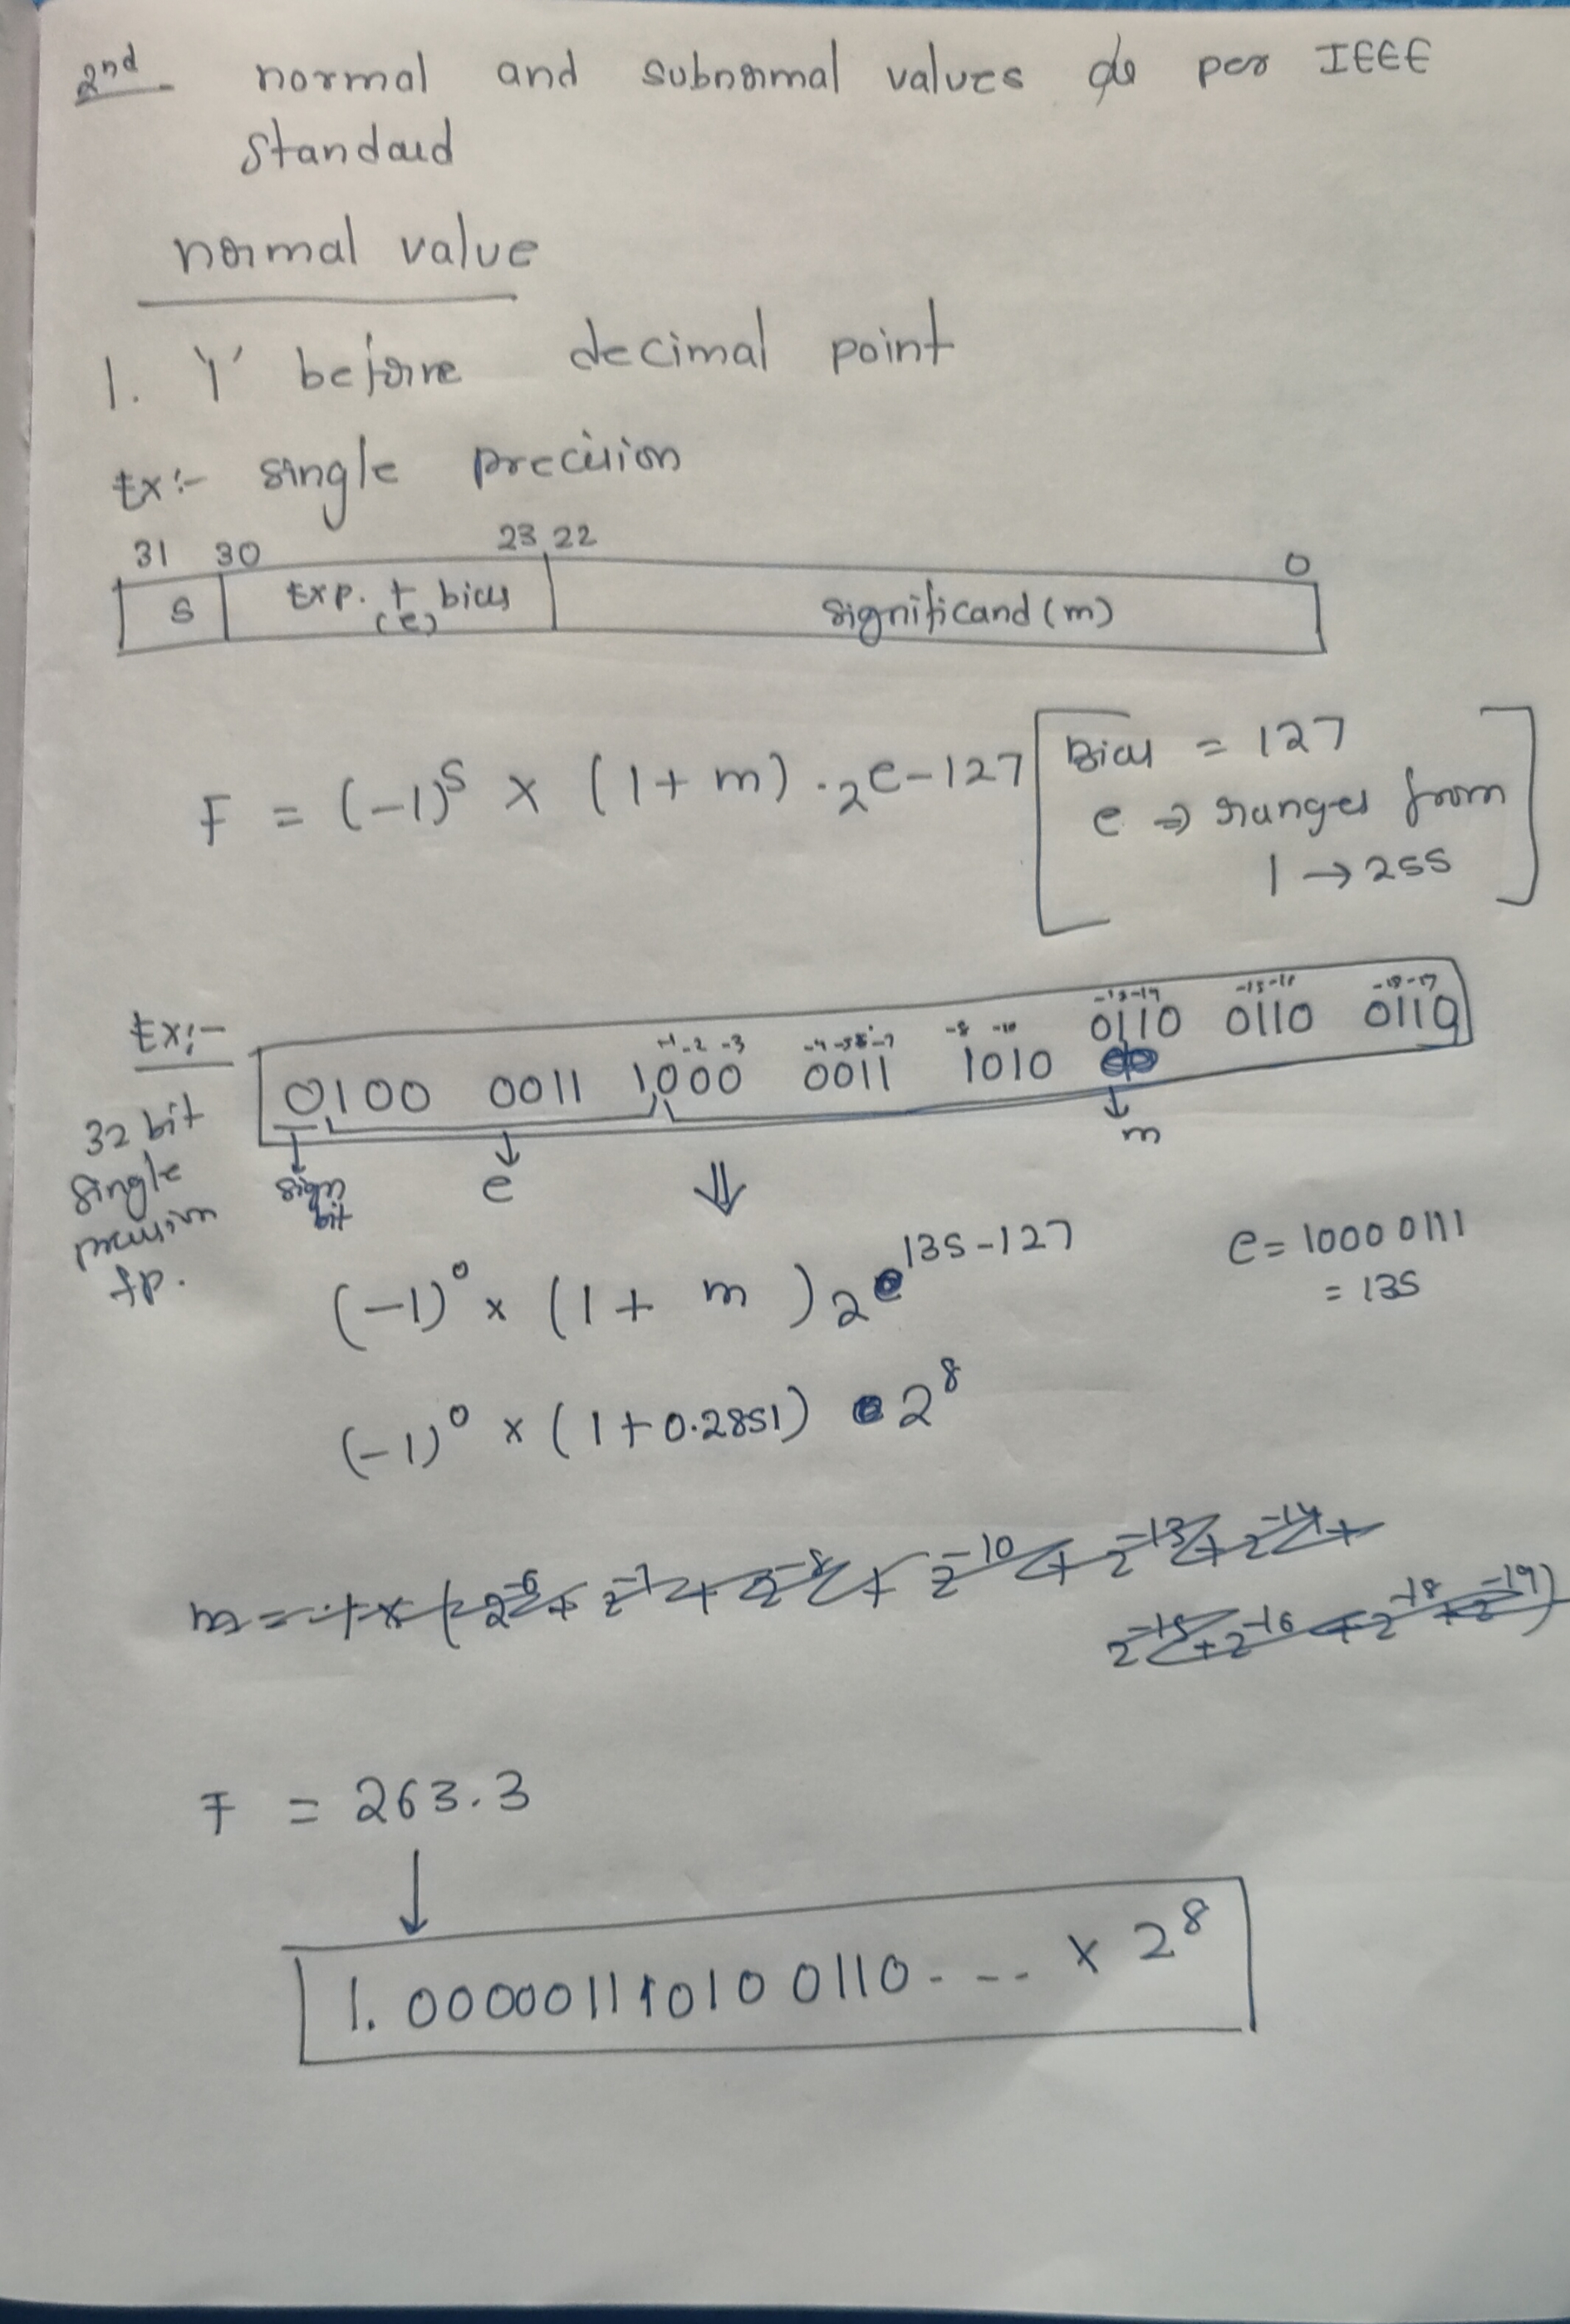 2nd normal and subnormal values as per IEEE
standard
normal value
1. '1' before decimal point
Ex:- single precision
31 30 23 22 0
S Exp. + bias (e) significand (m)
F = (-1)^S × (1 + m) . 2^e-127 [Bias = 127
e ⇒ ranges from
1 → 255]
-13-14 -15-16 -18-19
Ex:- 0110 0110 0110
-1 -2 -3 -4 -5 -6 -7 -8 -10
0100 0011 1000 0011 1010
32 bit
single
precision
fp.
sign
bit
e ⇓ m
(-1)^0 × (1 + m) 2^135-127 e = 1000 0111
= 135
(-1)^0 × (1 + 0.2851) 2^8
F = 263.3
↓
1. 00000111010 0110 - - - - × 2^8